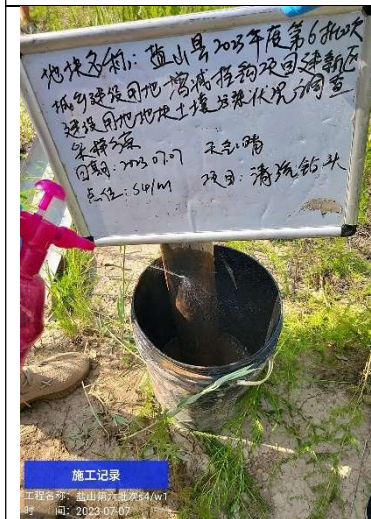 地块名称：盐山县2023年度第6批次
城乡建设用地增减挂钩项目建新区
建设用地地块土壤污染状况调查
采样
日期：2023.07.07 天气：晴
点位：S4/W1 项目：清洗钻头
施工记录
工程名称：盐山第六批次s4/w1
时 间：2023-07-07